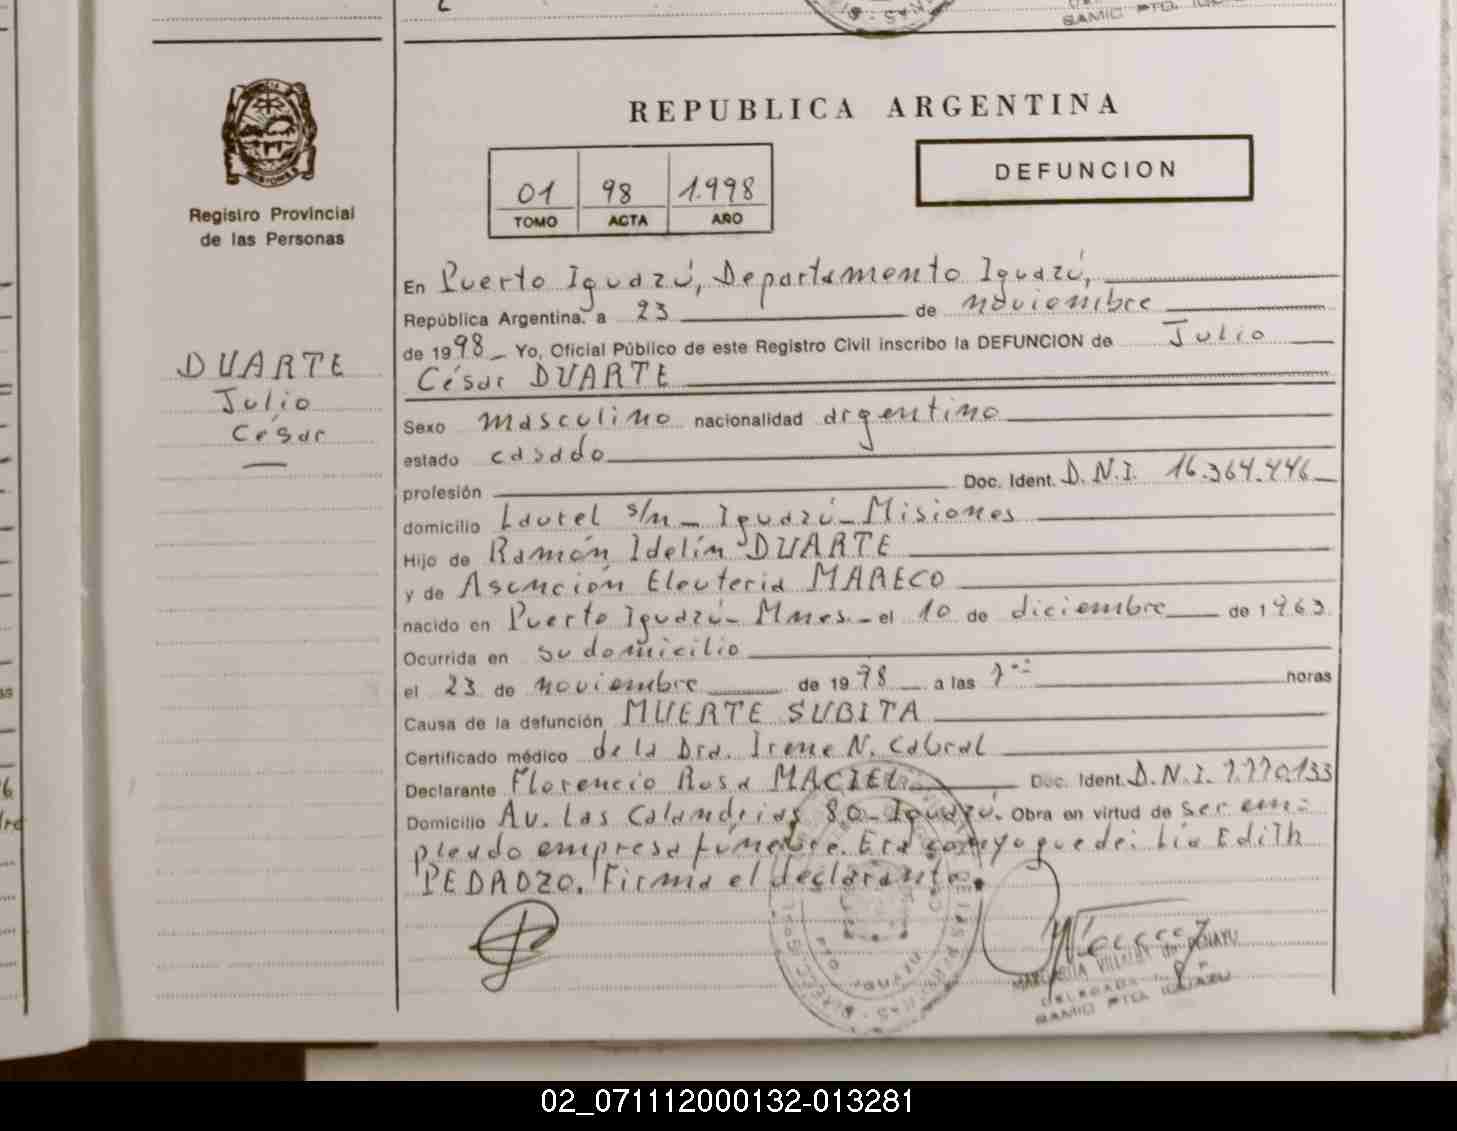 REPUBLICA ARGENTINA
DEFUNCION
01 98 1.998
TOMO ACTA AÑO
Registro Provincial
de las Personas
DUARTE
Julio
César
En Puerto Iguazú, Departamento Iguazú,
República Argentina, a 23 de noviembre
de 1998 Yo, Oficial Público de este Registro Civil inscribo la DEFUNCION de Julio
César DUARTE
Sexo masculino nacionalidad argentino
estado casado
profesión Doc. Ident. D.N.I. 16.364.446
domicilio Laurel s/n - Iguazú - Misiones
Hijo de Ramón Idelín DUARTE
y de Asención Eleuteria MARECO
nacido en Puerto Iguazú - Mnes. - el 10 de diciembre de 1963
Ocurrida en su domicilio
el 23 de noviembre de 1998 a las horas
Causa de la defunción MUERTE SUBITA
Certificado médico de la Dra. Irene N. Cabral
Declarante Florencio Rosa MACIEL Doc. Ident. D.N.I.
Domicilio Av. Las Calandrias 80 - Iguazú. Obra en virtud de ser em=
pleado empresa fúnebre. Era conyogue de: Lía Edith
PEDROZO. Firma el declarante.
DELEGADA
SAMIC PTO. IGUAZU
02_071112000132-013281